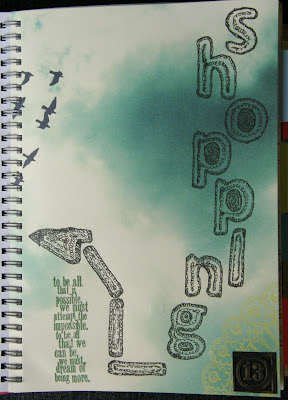 shopping
to be all
that is
possible,
we must
attempt the
impossible.
to be all
that we
can be,
we must
dream of
being more.
13